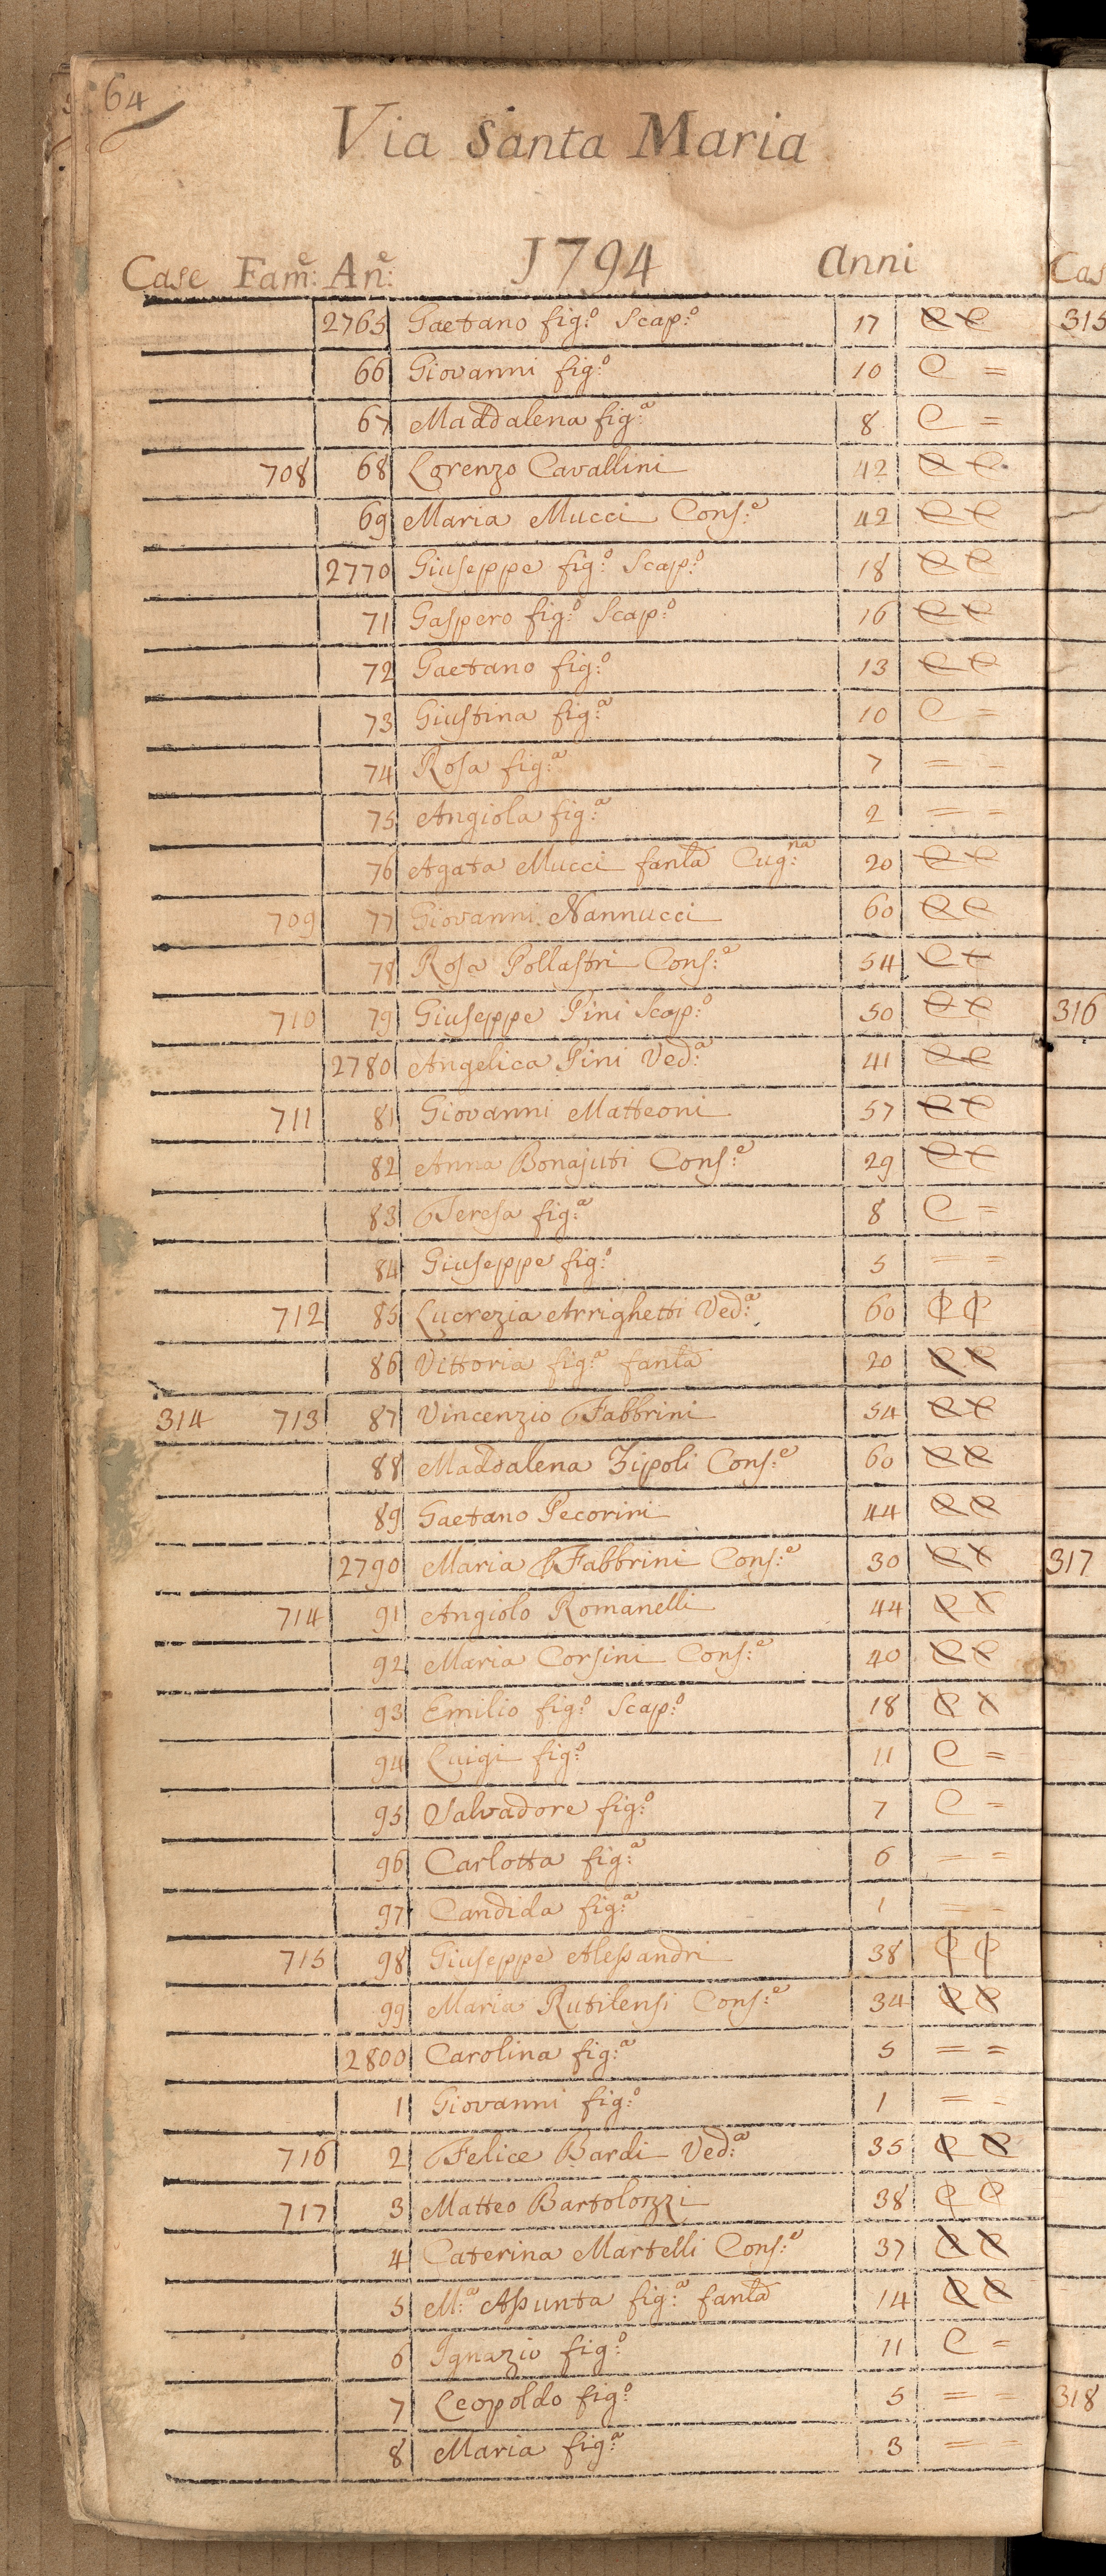 64
Via Santa Maria
Case Fam:e An:e 1794 Anni
2765 Gaetano fig:o Scap:o 17 e e
66 Giovanni fig:o 10 C =
67 Maddalena fig:a 8 C =
708 68 Lorenzo Cavallini 42 e e
69 Maria Mucci Cons:e 42 e e
2770 Giuseppe fig:o Scap:o 18 e e
71 Gaspero fig:o Scap:o 16 e e
72 Gaetano fig:o 13 e e
73 Giustina fig:a 10 C =
74 Rosa fig:a 7 = =
75 Angiola fig:a 2 = =
76 Agata Mucci fanla Cug:na 20 e e
709 77 Giovanni Nannucci 60 e e
78 Rosa Pollastri Cons:e 54 e e
710 79 Giuseppe Pini Scap:o 50 e e
2780 Angelica Pini Ved:a 41 e e
711 81 Giovanni Matteoni 57 e e
82 Anna Bonajuti Cons:e 29 e e
83 Teresa fig:a 8 C =
84 Giuseppe fig:o 5 = =
712 85 Lucrezia Arrighetti Ved:a 60 e e
86 Vittoria fig:a fanla 20 e e
314 713 87 Vincenzio Fabbrini 54 e e
88 Maddalena Zipoli Cons:e 60 e e
89 Gaetano Pecorini 44 e e
2790 Maria Fabbrini Cons:e 30 e e
714 91 Angiolo Romanelli 44 e e
92 Maria Corsini Cons:e 40 e e
93 Emilio fig:o Scap:o 18 e e
94 Luigi fig:o 11 C =
95 Salvadore fig:o 7 C =
96 Carlotta fig:a 6 = =
97 Candida fig:a 1 = =
715 98 Giuseppe Alessandri 38 e e
99 Maria Rutilensi Cons:e 34 e e
2800 Carolina fig:a 5 = =
1 Giovanni fig:o 1 = =
716 2 Felice Bardi Ved:a 35 e e
717 3 Matteo Bartolozzi 38 e e
4 Caterina Martelli Cons:e 37 e e
5 M:a Assunta fig:a fanla 14 e e
6 Ignazio fig:o 11 C =
7 Leopoldo fig:o 5 = =
8 Maria fig:a 3 = =
Cas
315
316
317
318